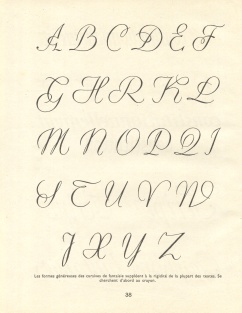 A B C D E F
G H R K L
M N O P Q I
S T U V W
J X Y Z
Les formes généreuses des cursives de fantaisie suppléent à la rigidité de la plupart des textes. Se
cherchent d'abord au crayon.